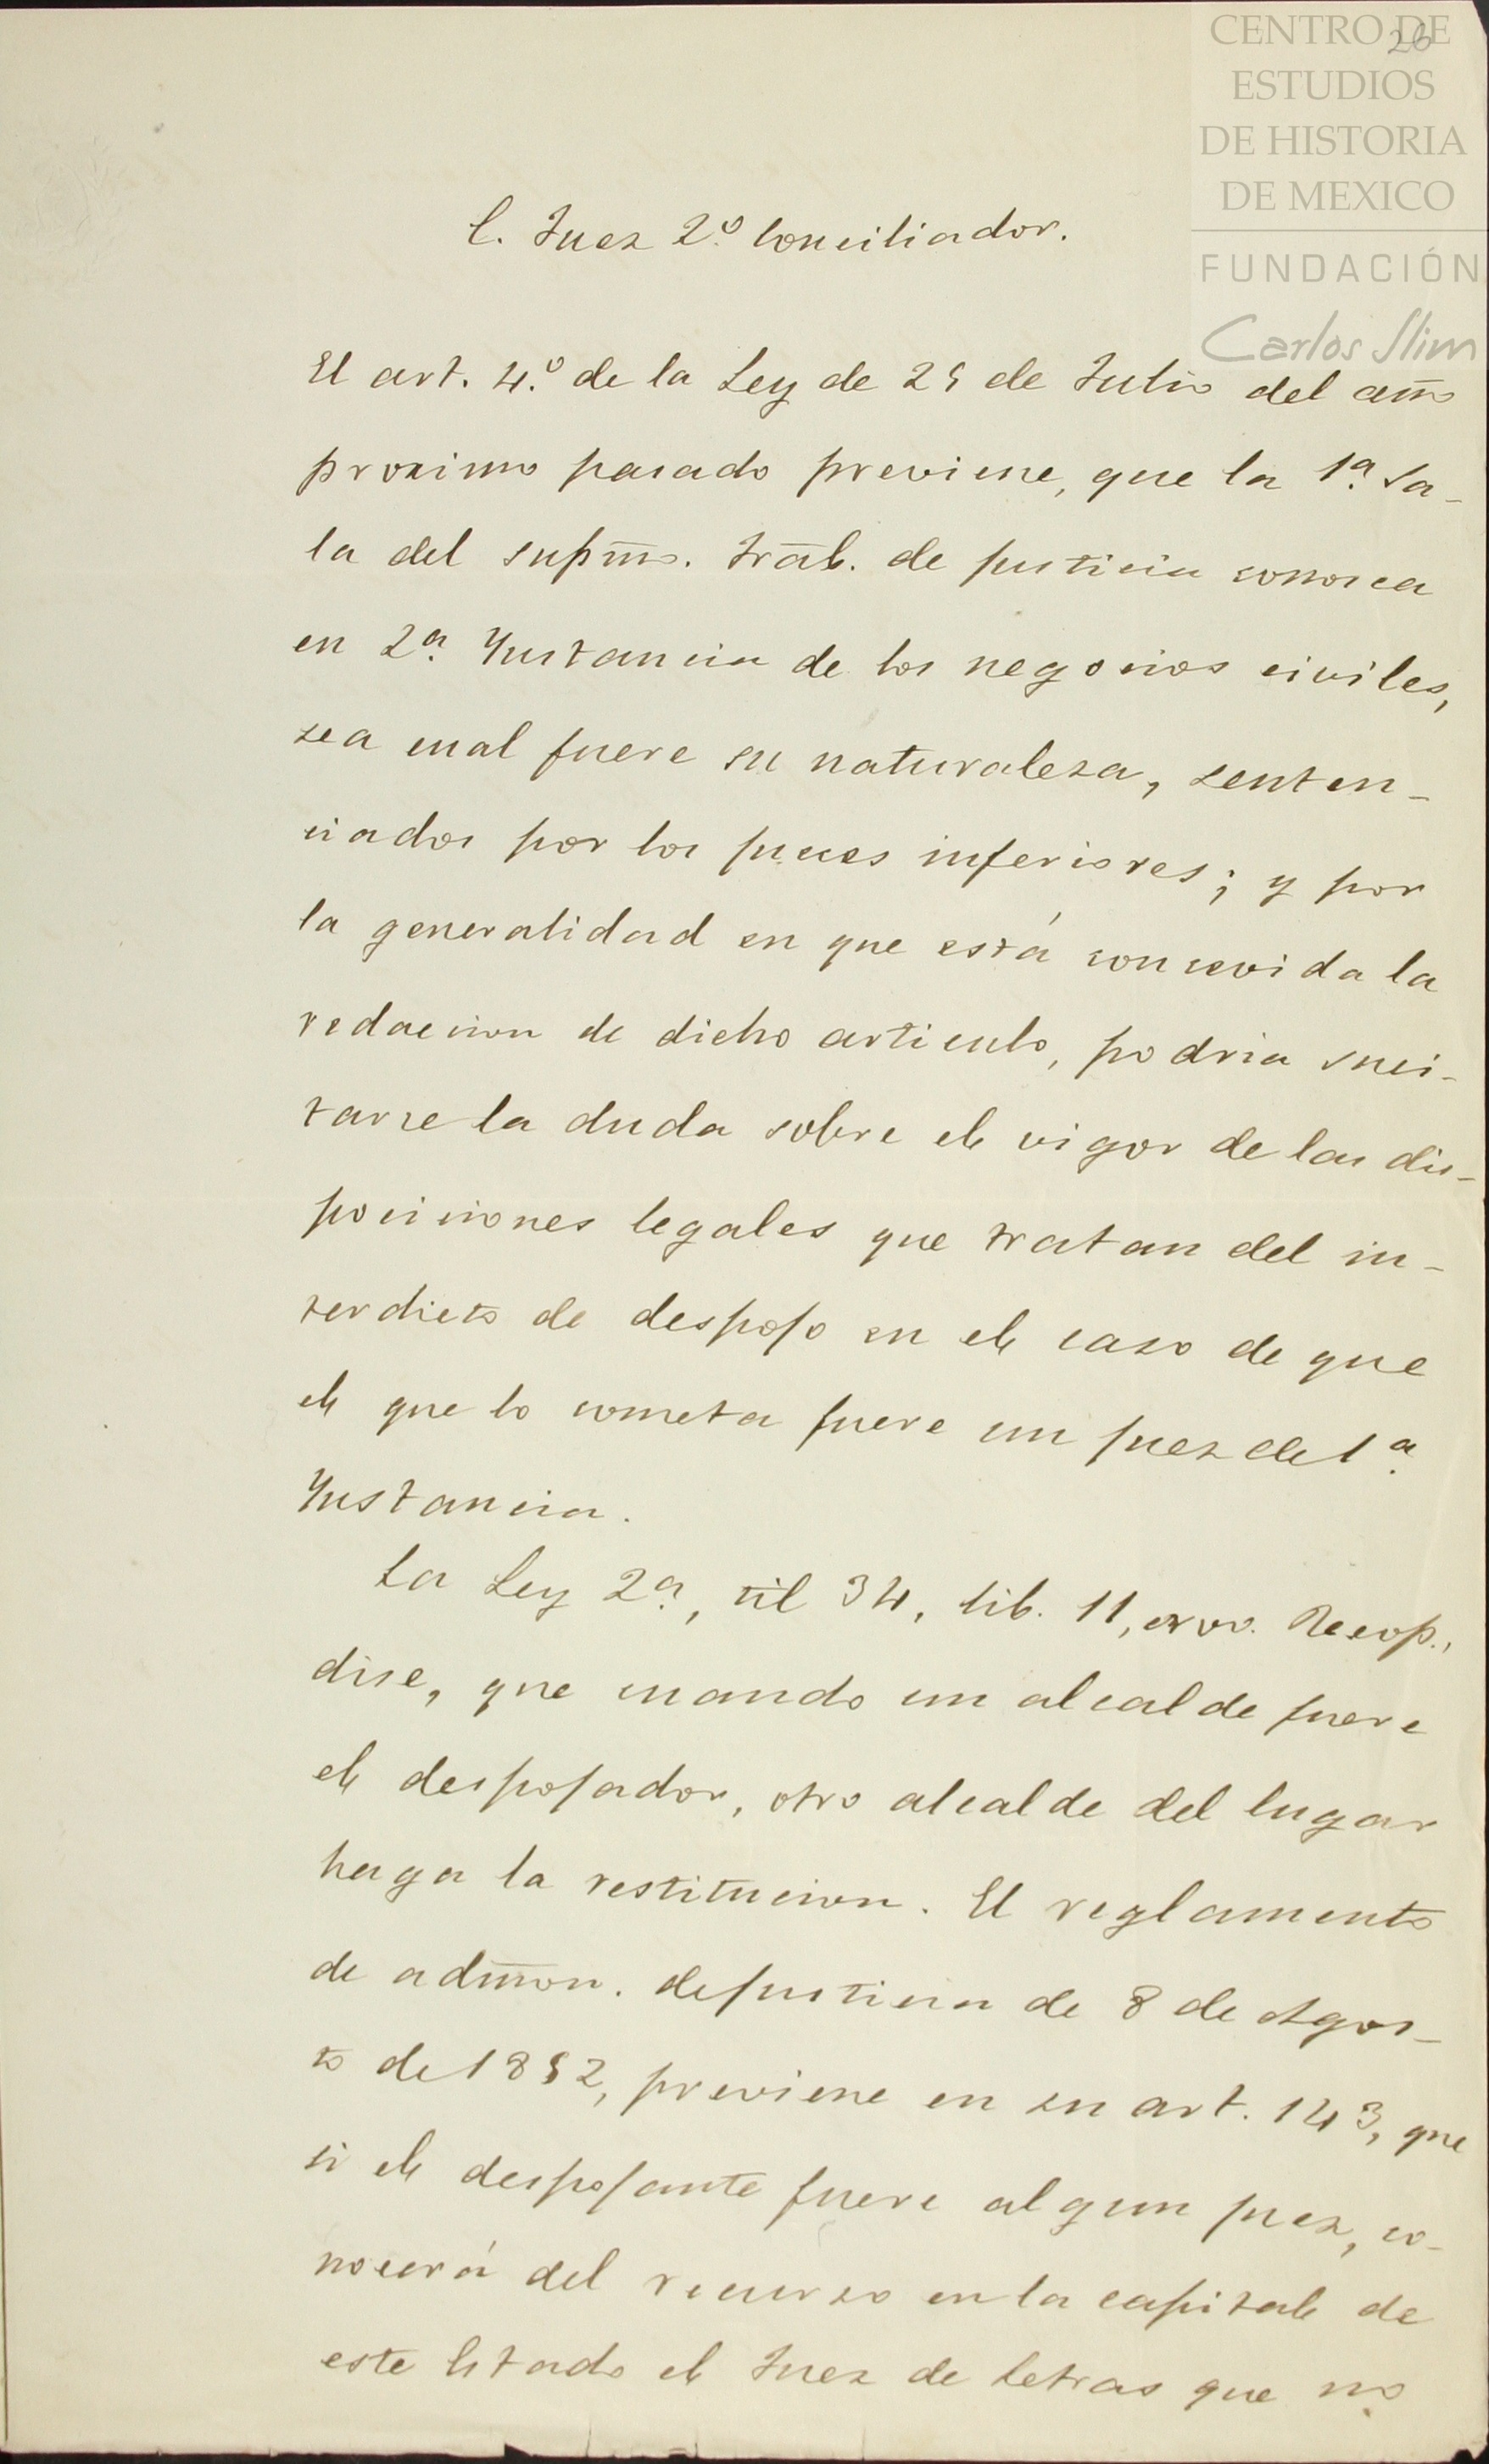 CENTRO DE
ESTUDIOS
DE HISTORIA
DE MEXICO
FUNDACIÓN
Carlos Slim
26
C. Juez 2º Conciliador.
El art. 4º de la Ley de 25 de Julio del año
proximo pasado previene, que la 1ª Sa-
la del supmo. trāl. de justicia conosca
en 2ª Instancia de los negocios civiles,
sea cual fuere su naturaleza, senten-
ciados por los jueces inferiores; y por
la generalidad en que está concevida la
redacion de dicho articulo, podria suci-
tarse la duda sobre el vigor de las dis-
posiciones legales que tratan del in-
terdicto de despojo en el caso de que
el que lo cometa fuere un juez de 1ª
Instancia.
La Ley 2ª, tit 34, lib. 11, nov. Recop.,
dise, que cuando un alcalde fuere
el despojador, otro alcalde del lugar
haga la restitucion. El reglamento
de admon. de justicia de 8 de Agos-
to de 1852, previene en su art. 143, que
si el despojante fuere algun juez, co-
nocerá del recurso en la capital de
este Estado el Juez de Letras que no